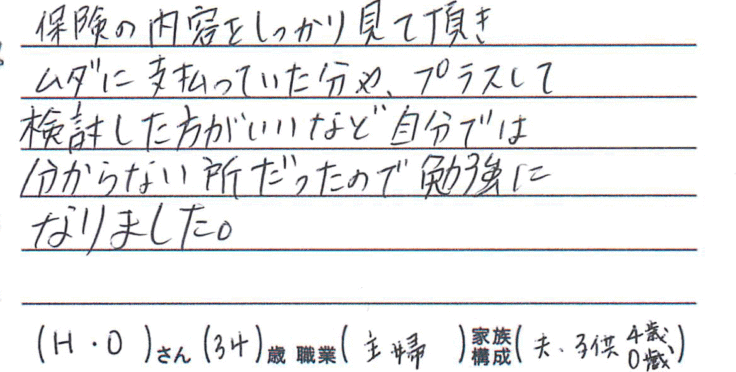 保険の内容をしっかり見て頂き
ムダに支払っていた分や、プラスして
検討した方がいいなど自分では
分からない所だったので勉強に
なりました。
(H・O)さん(34)歳 職業(主婦)家族構成(夫、子供 4歳、0歳)